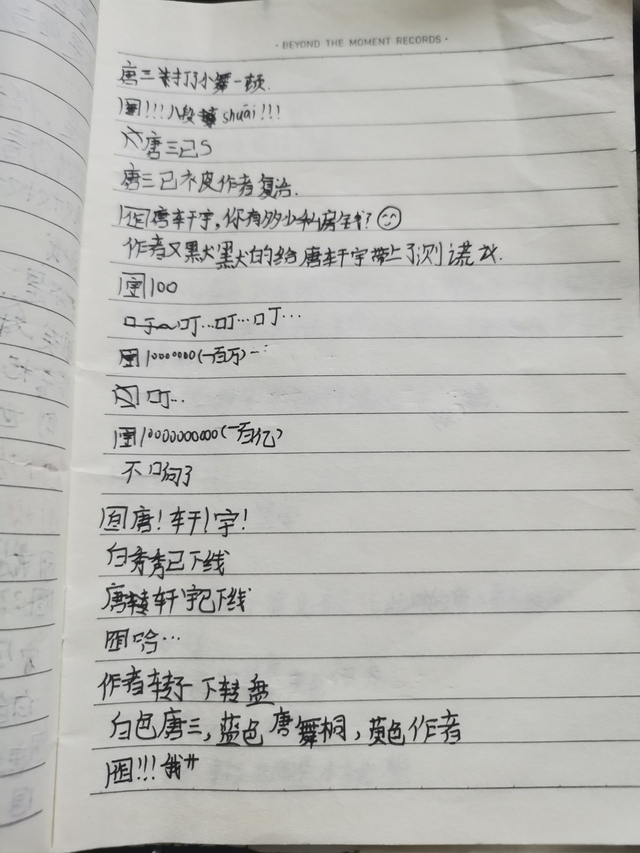 · BEYOND THE MOMENT RECORDS ·
唐三打了小舞一顿.
!!!八段 shuāi!!!
唐三已S
唐三已 作者复治.
唐轩宇,你有多少私房钱?
作者又默默的给唐轩宇带上了测谎
100
叮…叮…叮…
1000000(一百万)
叮…
10000000000(一百亿)
不叫了
唐!轩!宇!
白秀秀已下线
唐轩宇已下线
哈…
作者转了下转盘
白色唐三,蓝色唐舞桐,黄色作者
!!!我